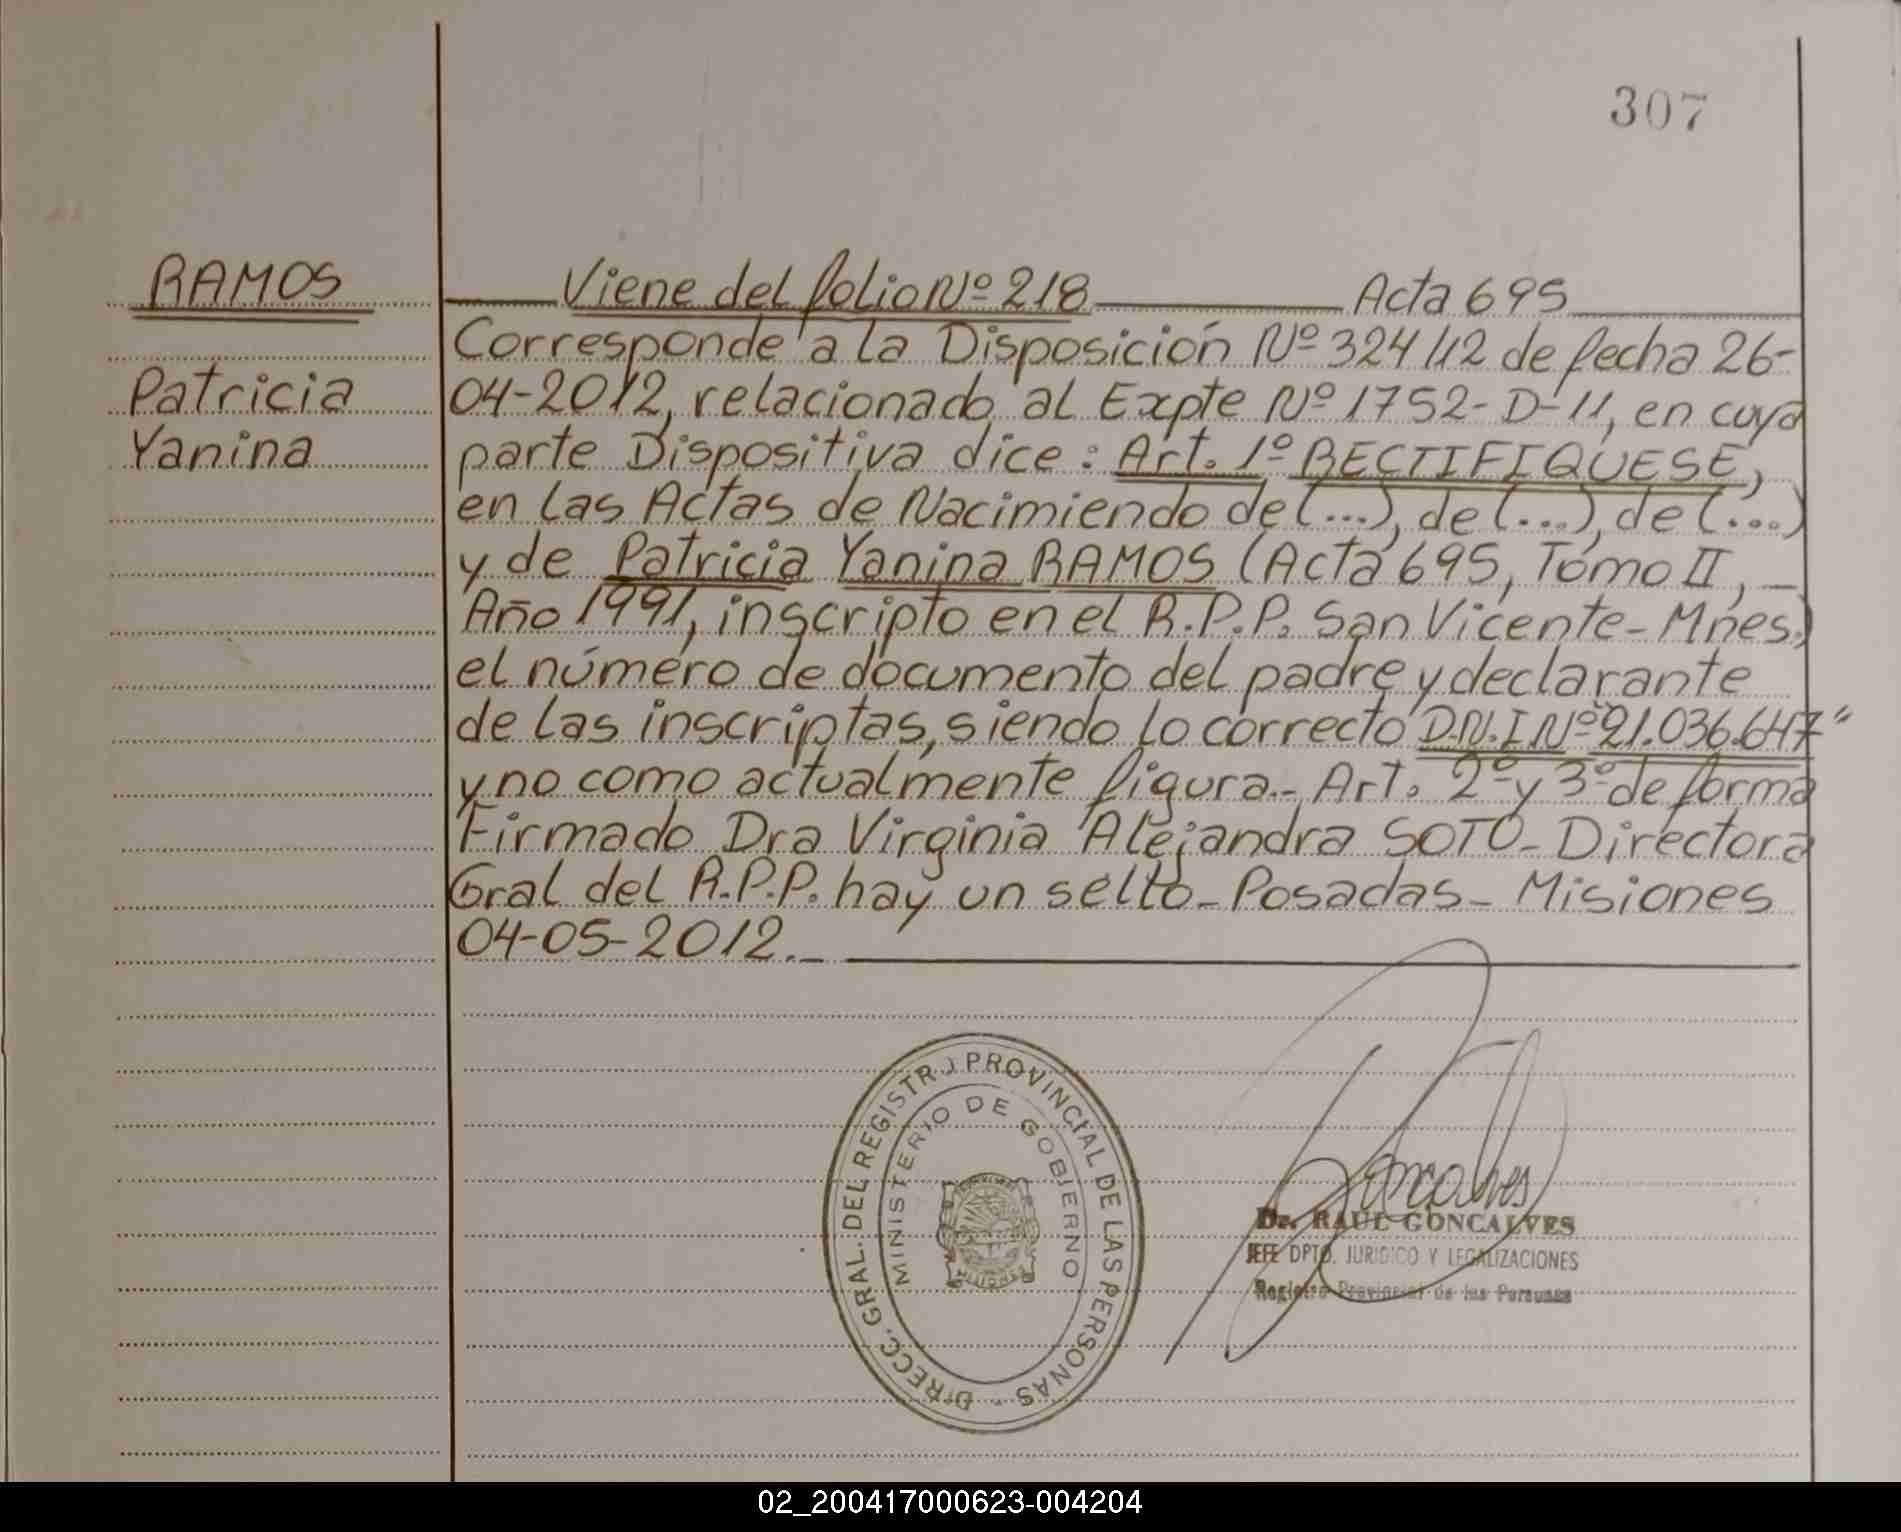 307
RAMOS
Patricia
Yanina
Viene del folio Nº 218 Acta 695
Corresponde a la Disposición Nº 324/12 de fecha 26-
04-2012, relacionado al Expte Nº 1752-D-11, en cuya
parte Dispositiva dice: Art. 1º RECTIFIQUESE,
en las Actas de Nacimiendo de (...), de (...), de (...)
y de Patricia Yanina RAMOS (Acta 695, Tomo II, _
Año 1991, inscripto en el R.P.P. San Vicente - Mnes.)
el número de documento del padre y declarante
de las inscriptas, siendo lo correcto D.N.I Nº 21.036.647"
y no como actualmente figura.- Art. 2º y 3º de forma
Firmado Dra Virginia Alejandra SOTO - Directora
Gral del R.P.P. hay un sello - Posadas - Misiones
04-05-2012._
DIRECC. GRAL. DEL REGISTRO PROVINCIAL DE LAS PERSONAS -
MINISTERIO DE GOBIERNO
MISIONES
Goncalves
Dr. RAUL GONCALVES
JEFE DPTO. JURIDICO Y LEGALIZACIONES
Registro Provincial de las Personas
02_200417000623-004204